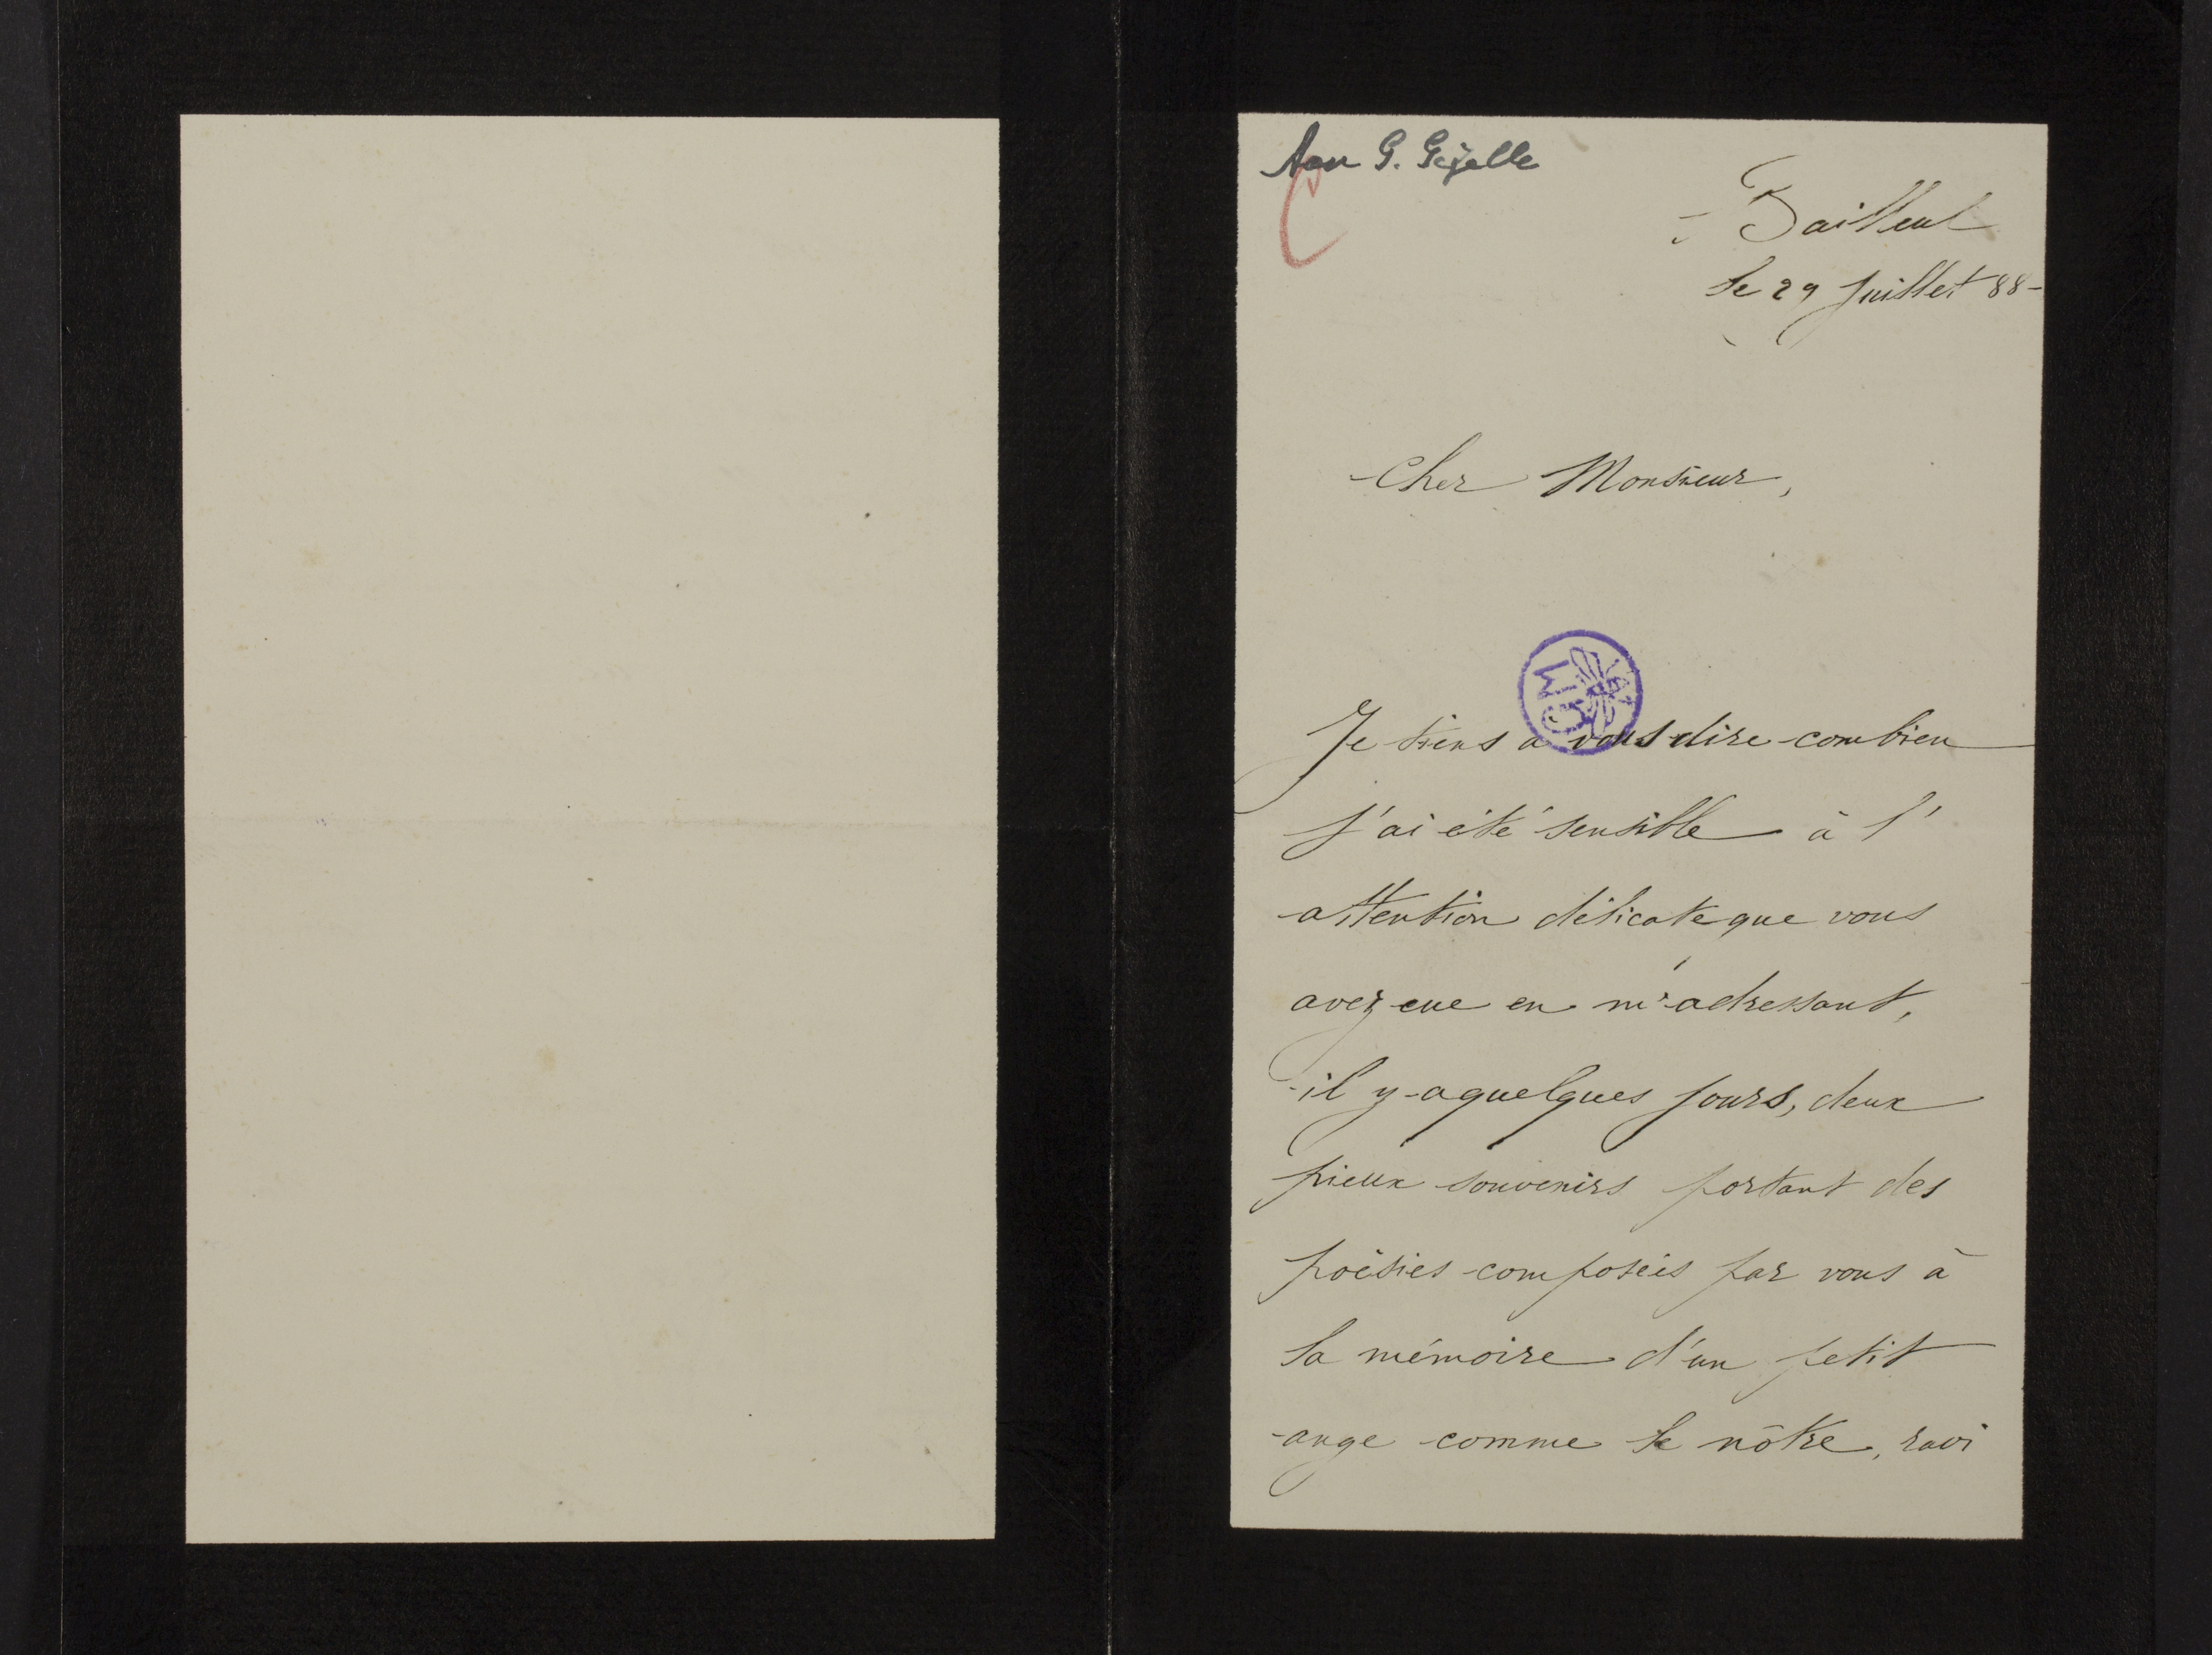 Aan G. Gezelle
Bailleul
le 29 Juillet 88-
Cher Monsieur,
GM
Je tiens à vous dire combien
j'ai été sensible à l'
attention délicate que vous
avez eue en m'adressant,
il y a quelques jours, deux
pieux souvenirs portant des
poësies composées par vous à
la mémoire d'un petit
ange comme le nôtre, ravi